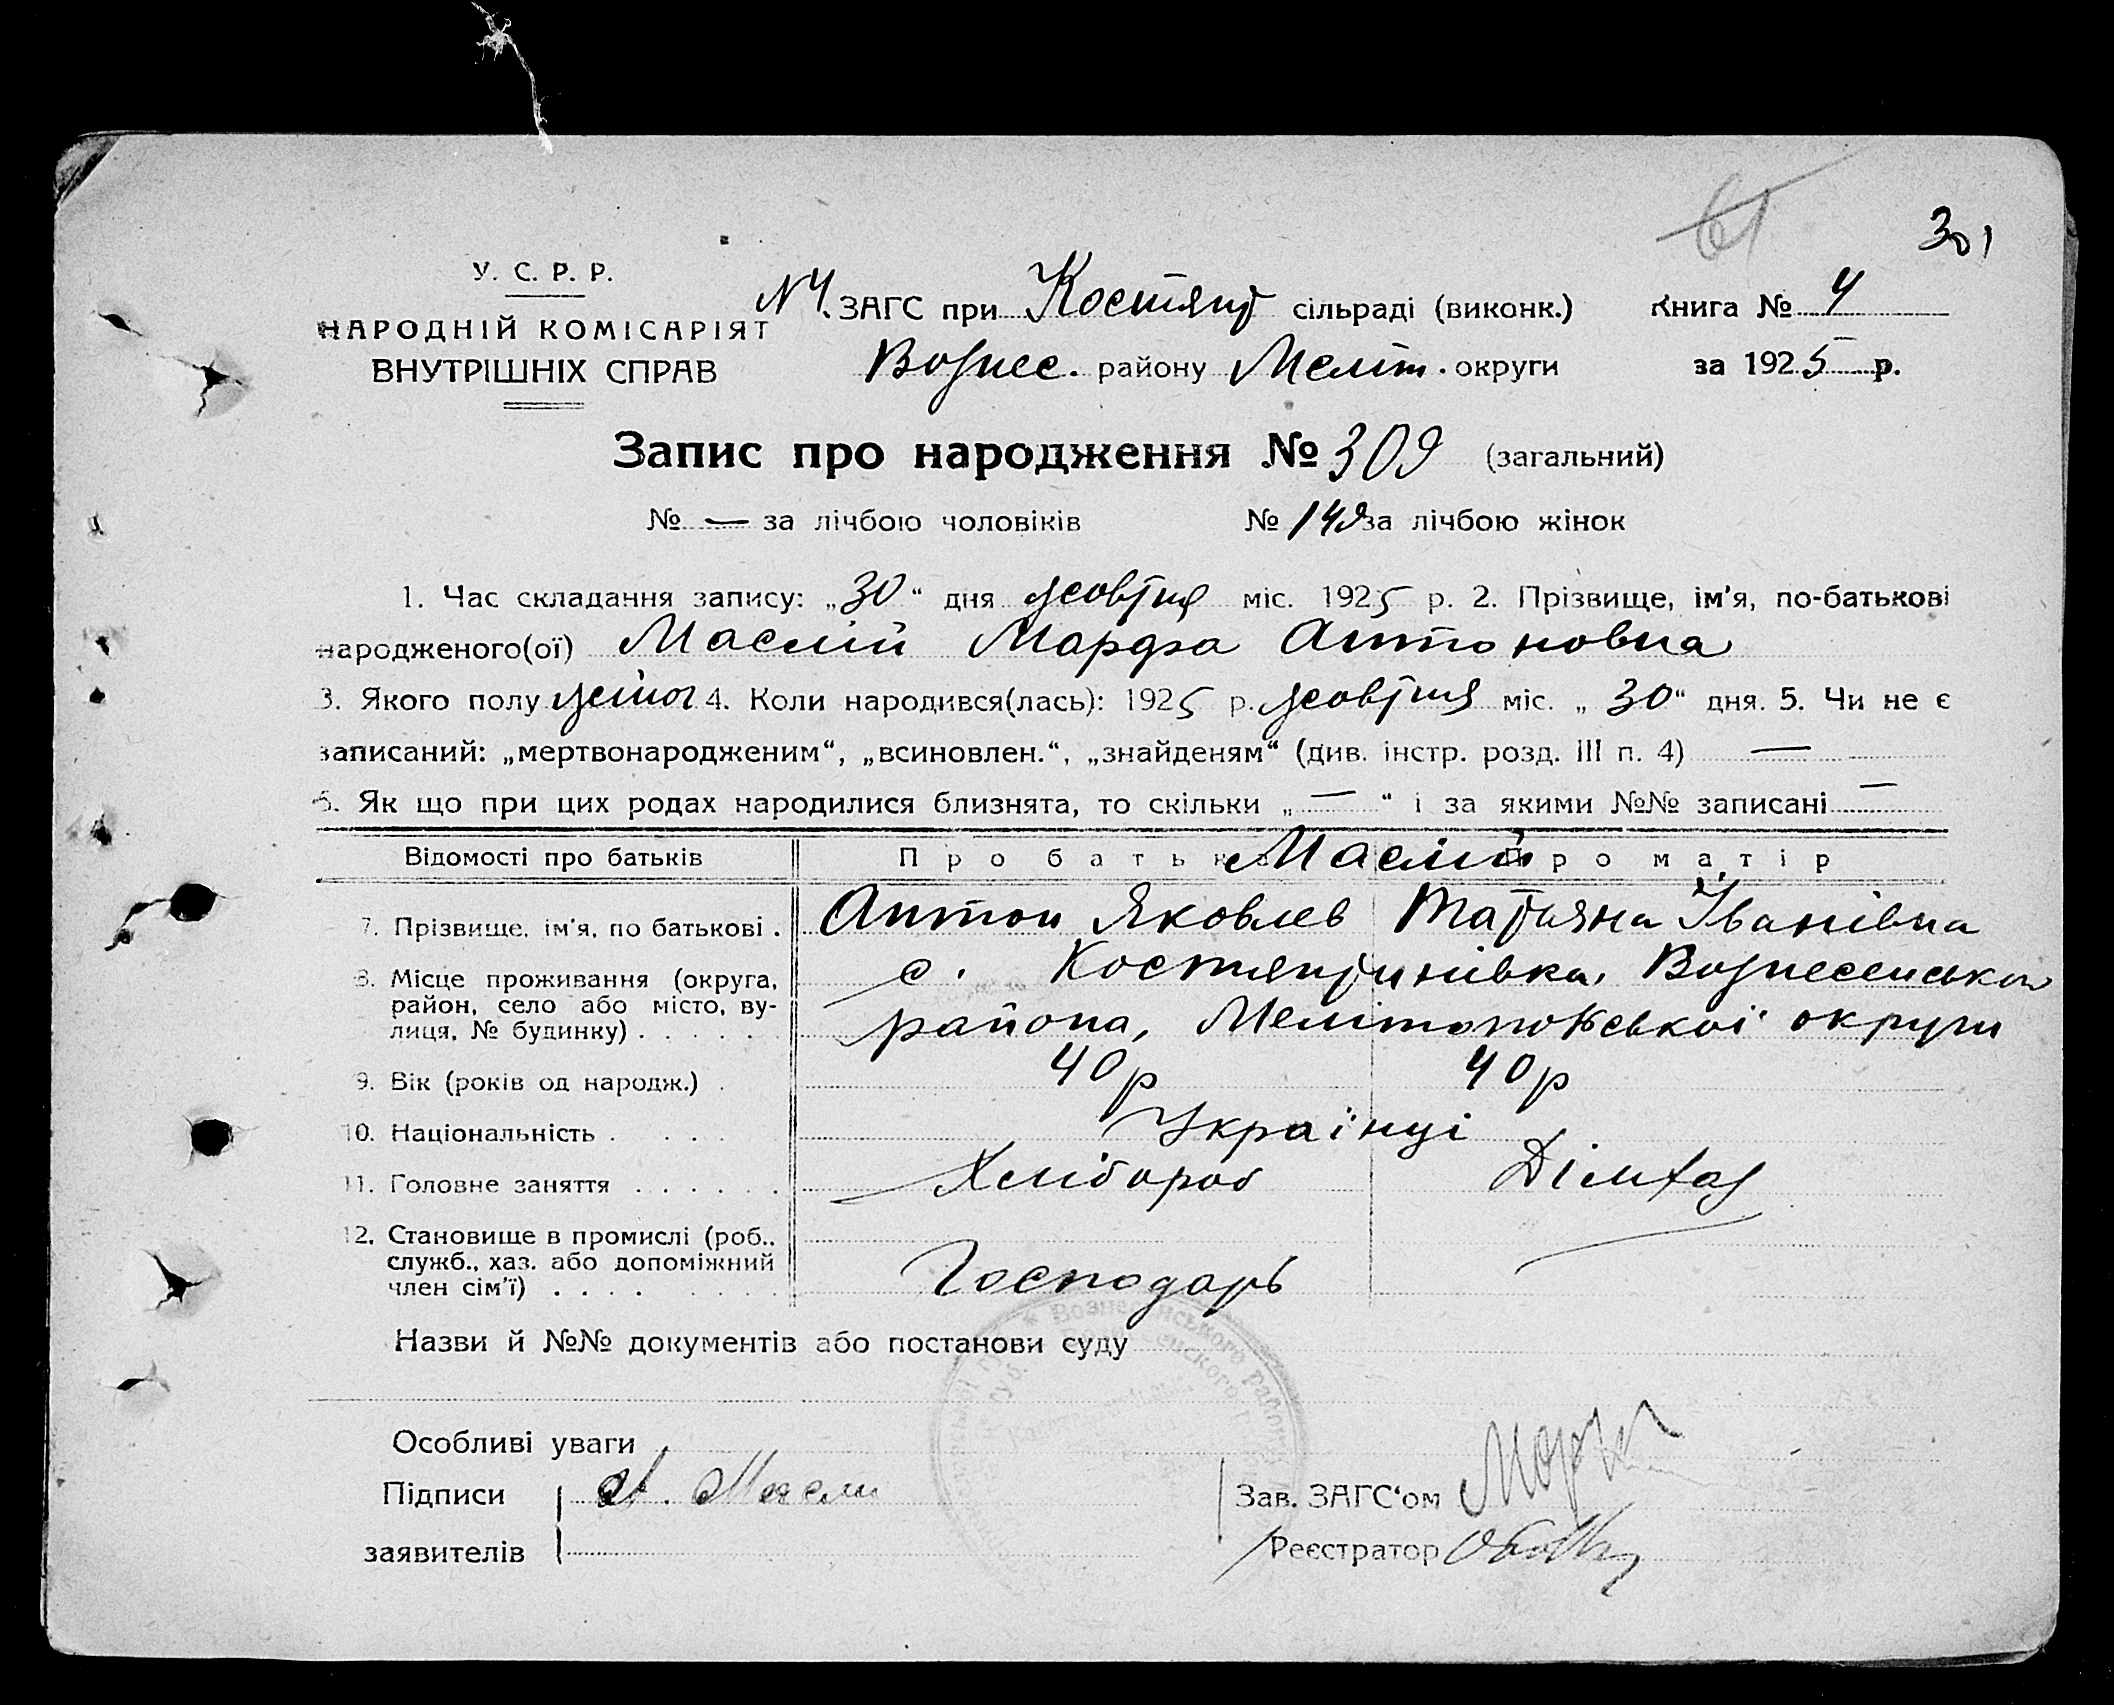 301
У. С. Р. Р.
НАРОДНІЙ КОМІСАРІЯТ
ВНУТРІШНІХ СПРАВ
№ 4. ЗАГС при Костянт сільраді (виконк.) Книга № 4
Вознес. району Меліт. округи за 1925 р.
Запис про народження № 309 (загальний)
№ — за лічбою чоловіків № 149 за лічбою жінок
1. Час складання запису: „30“ дня жовтня міс. 1925 р. 2. Прізвище, ім'я, по-батькові
народженого(ої) Маслій Марфа Антоновна
3. Якого полу жіноч 4. Коли народився(лась): 1925 р. жовтня міс. „30“ дня. 5. Чи не є
записаний: „мертвонародженим“, „всиновлен.“, „знайденям“ (див. інстр. розд. III п. 4) —
6. Як що при цих родах народилися близнята, то скільки „ — “ і за якими №№ записані —
Відомості про батьків Про батька Маслій Про матір
7. Прізвище, ім'я, по батькові . Антон Яковлев Татьяна Іванівна
8. Місце проживання (округа, район, село або місто, вулиця, № будинку) . . . . . с. Костянтинівка, Вознесенськ
района, Мелітопольської округи
9. Вік (років од народж.) . 40 р 40 р
10. Національність . . . . Українці
11. Головне заняття . . . . . . Хлібороб
12. Становище в промислі (роб., служб., хаз. або допоміжний член сім'ї) . . . . Господарь
Назви й №№ документів або постанови суду
Особливі уваги
Підписи А. Масли Зав. ЗАГС‘ом
заявителів Реєстратор